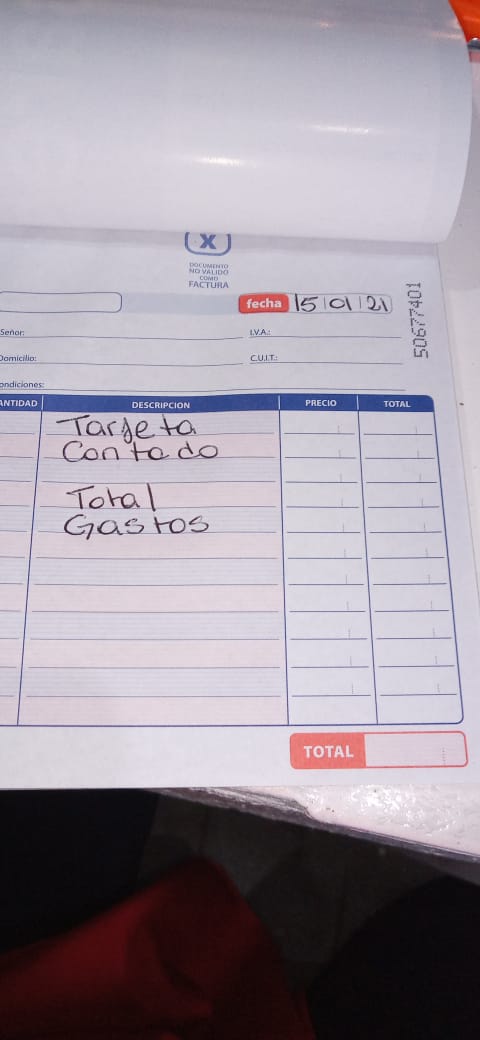 X
DOCUMENTO
NO VALIDO
COMO
FACTURA
fecha 15 01 21
50677401
Señor: I.V.A.:
Domicilio: C.U.I.T.:
ondiciones:
ANTIDAD DESCRIPCION PRECIO TOTAL
Tarjeta
Contado
Total
Gastos
TOTAL